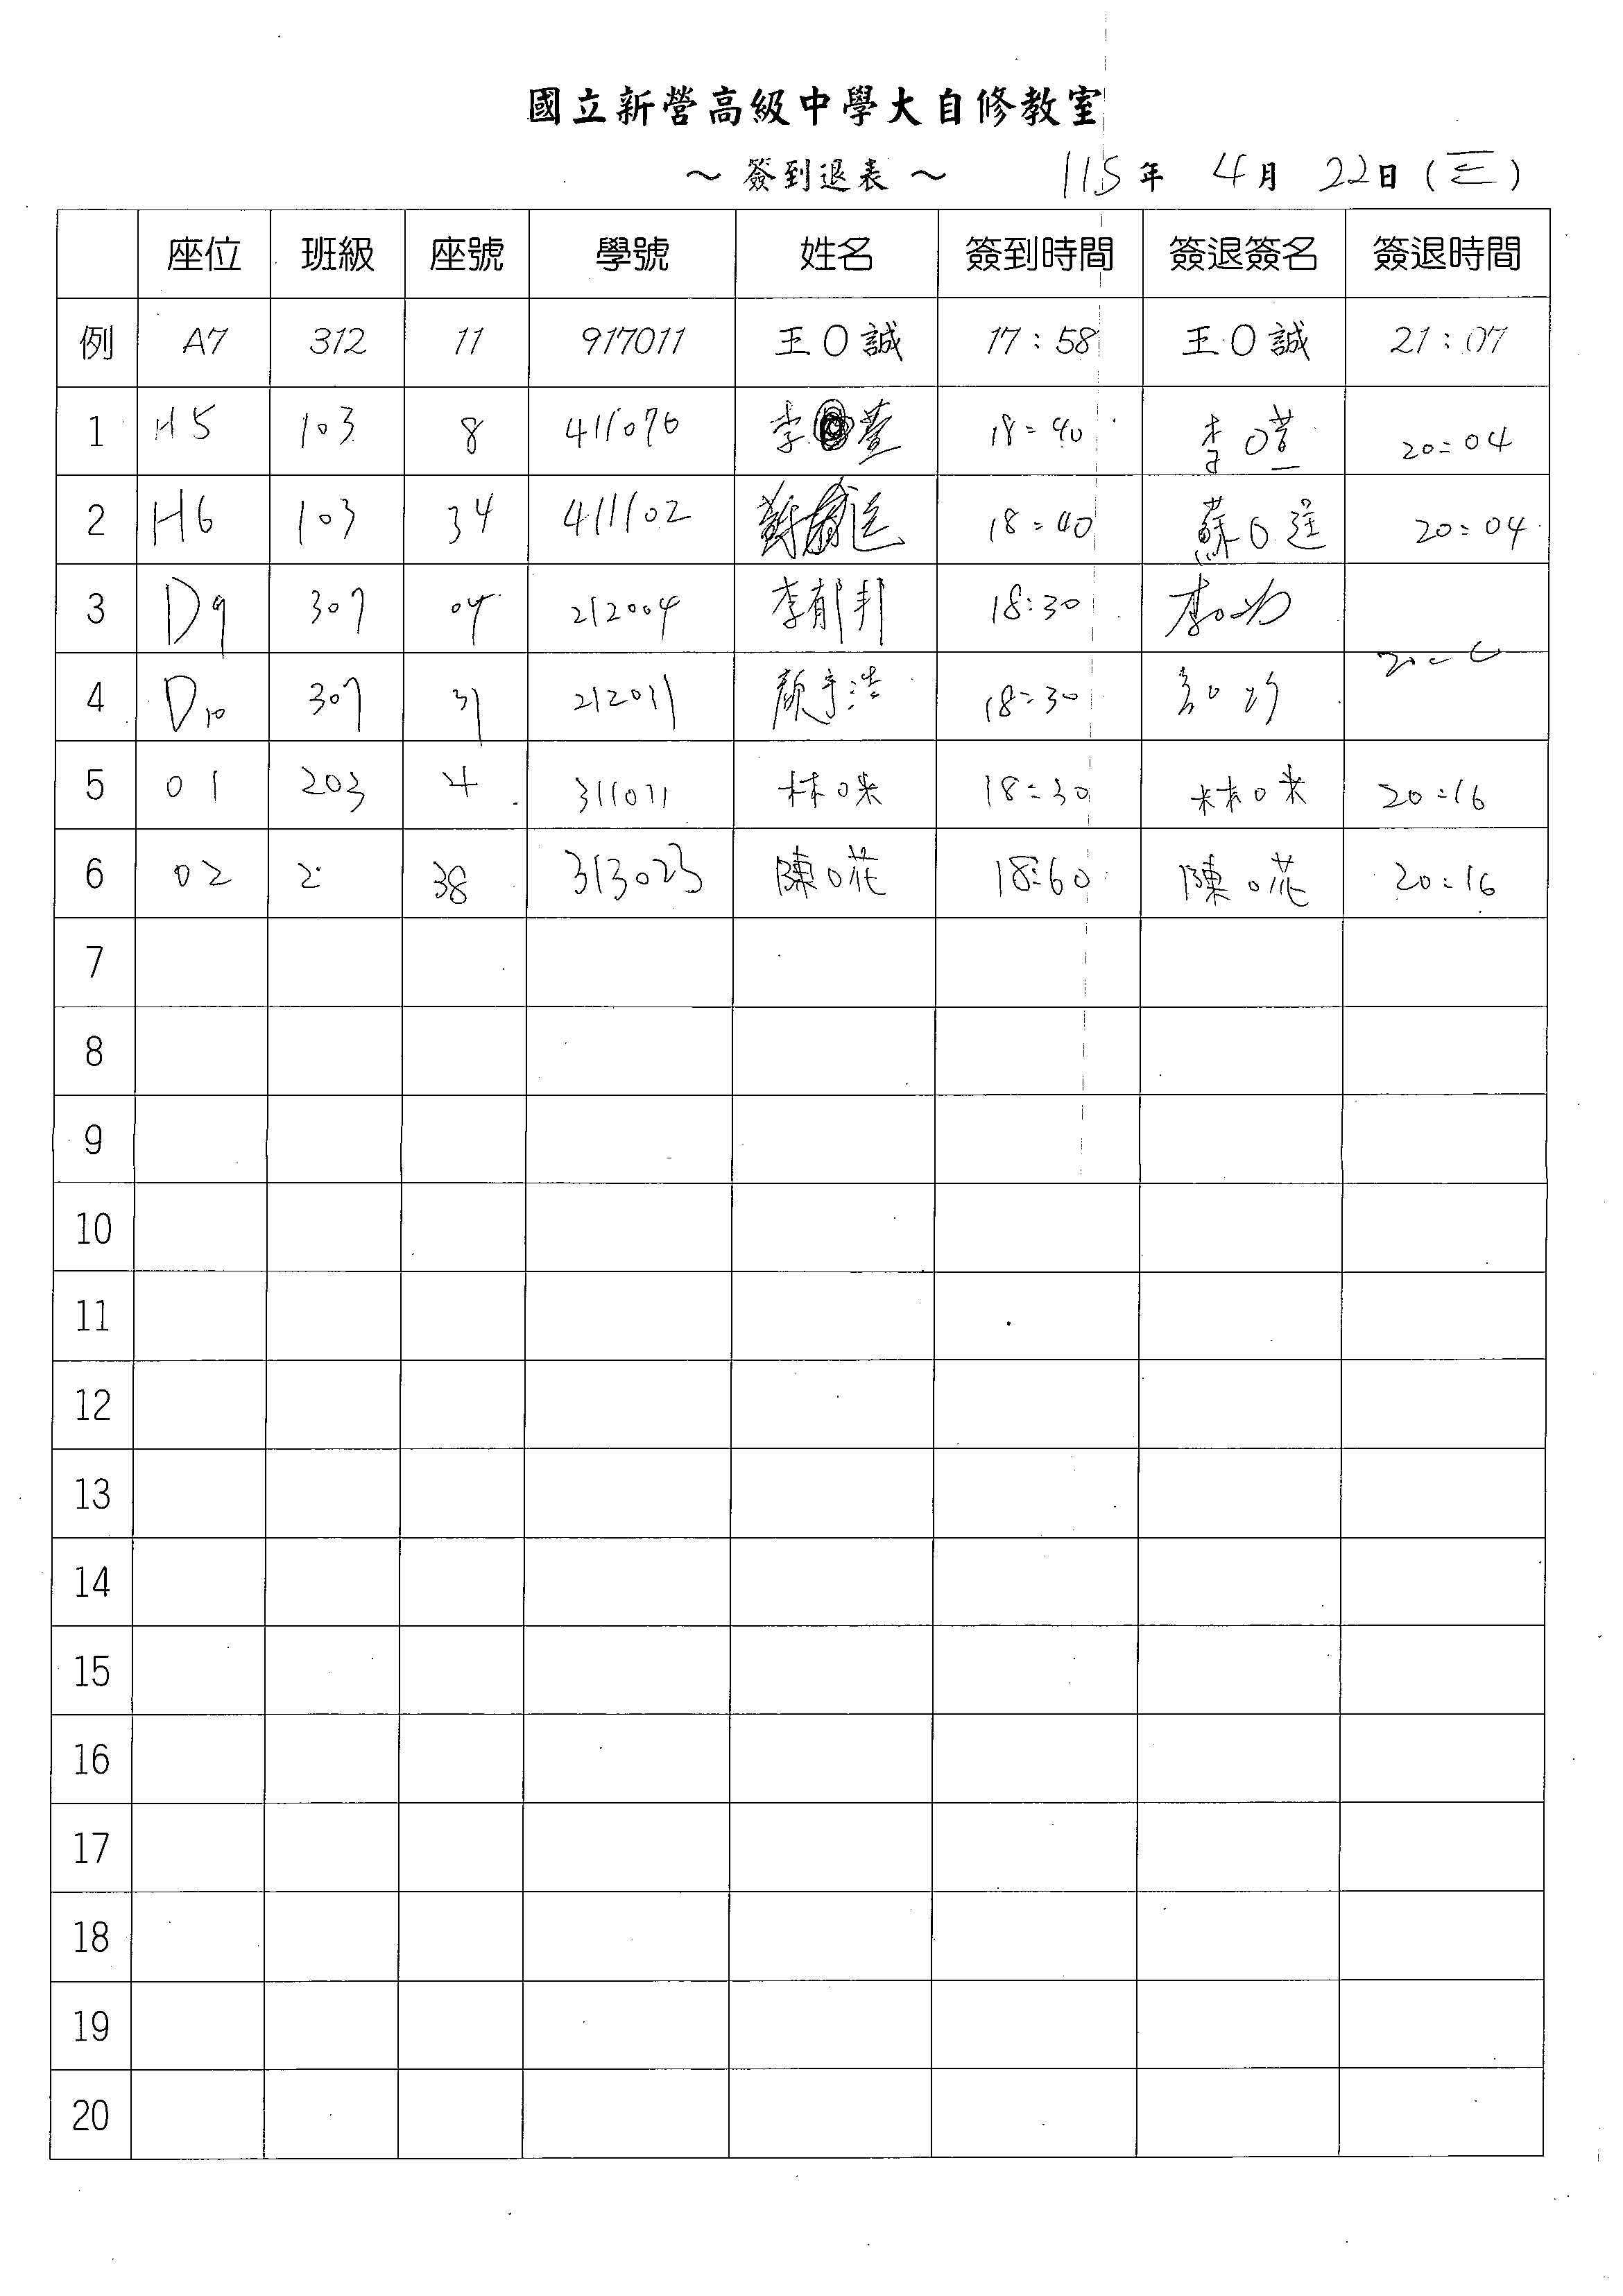 國立新營高級中學大自修教室
～ 簽到退表 ～ 115年 4月 22日(三)
座位 班級 座號 學號 姓名 簽到時間 簽退簽名 簽退時間
例 A7 312 11 917011 王O誠 17:58 王O誠 21:07
1 H5 103 8 411076 李 萱 18:40 李O萱 20:04
2 H6 103 34 411102 蘇 18:40 蘇O 20:04
3 D9 307 04 212004 李郁邦 18:30 李O
4 D10 307 31 212011 顏 浩 18:30
5 01 203 4 311011 林O 18:30 林O 20:16
6 02 2 38 313023 陳O花 18:60 陳O花 20:16
7
8
9
10
11
12
13
14
15
16
17
18
19
20